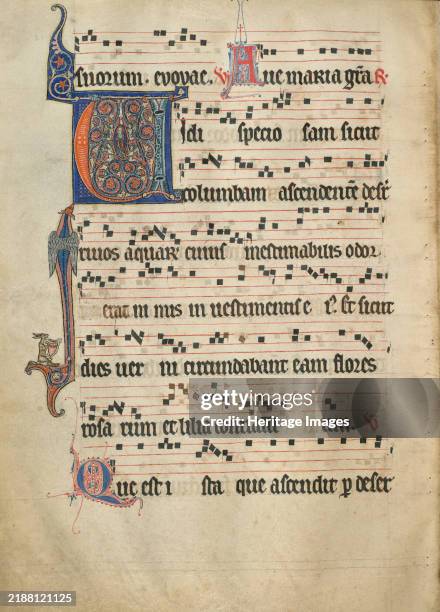 suorum . evovae. V Aue maria gr̃a R
Uidi specio sam sicut
columbam ascendentē desr̄
riuos aquar̃ cuius inestimabilis odor
erat ni mis in uestimentis e iꝰ. Et sicut
dies uer ni circundabant eam flores
rosa rum et lilia
Que est i sta que ascendit ꝑ deser
gettyimages
Credit: Heritage Images
2188121125